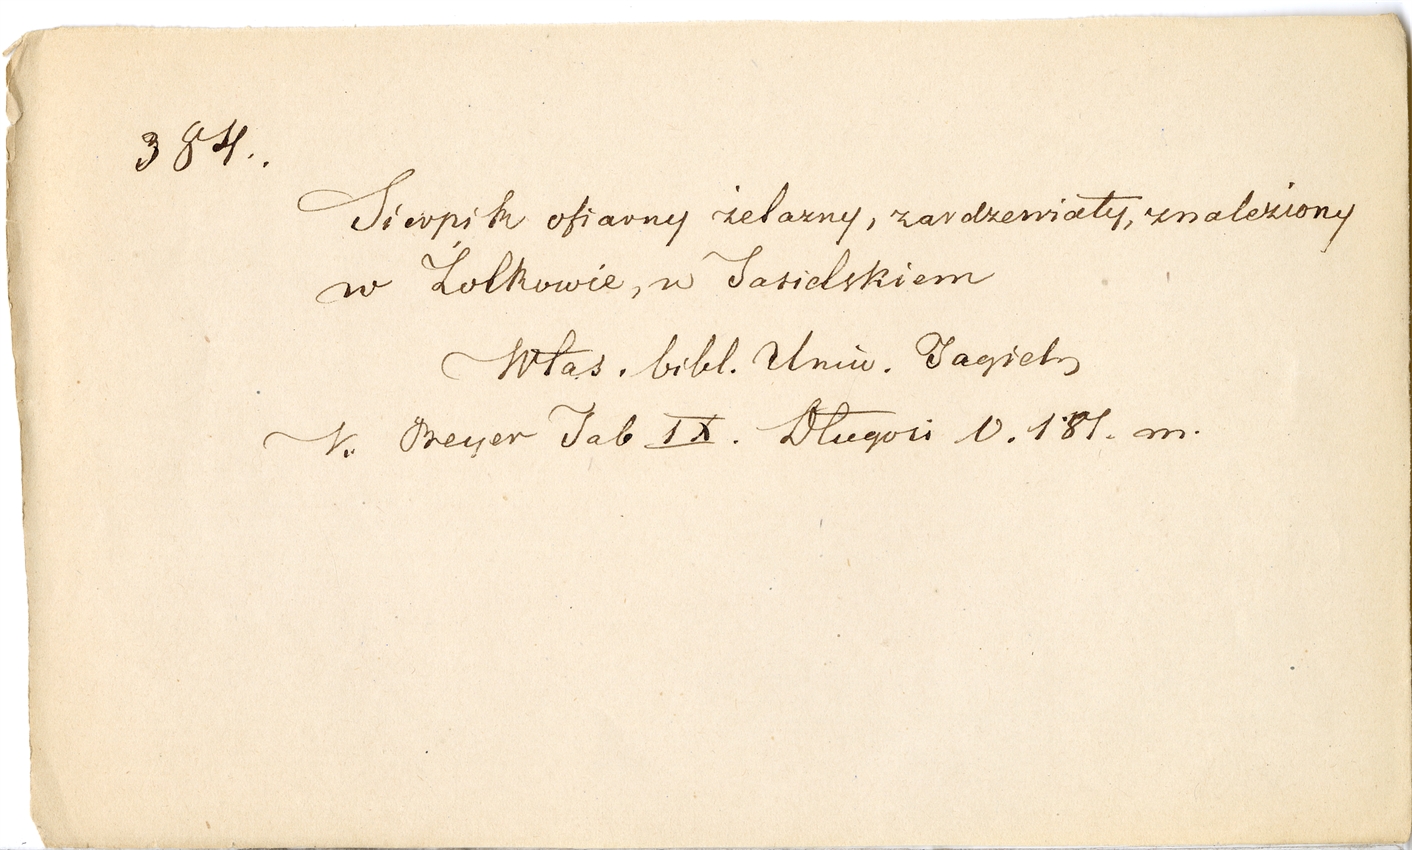 384.
Sierpik ofiarny żelazny, zardzewiały, znaleziony
w Żolkowie, w Jasielskiem
Włas. bibl. Uniw. Jagiel.
N. Preyer Tab IX. Długości 0.181. m.